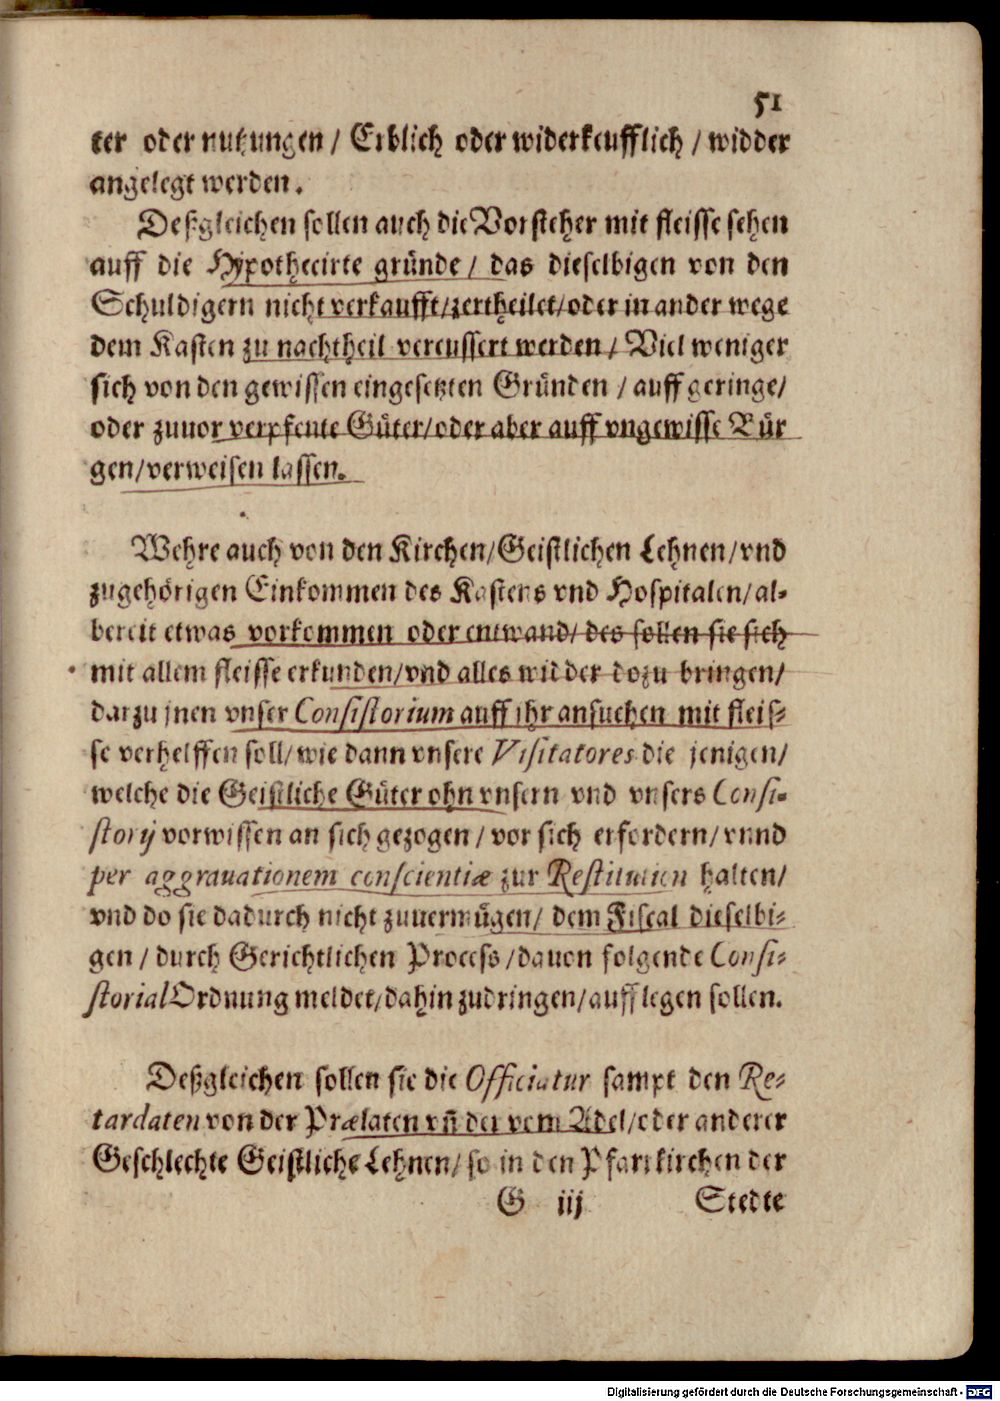 51
ter oder nutzungen / Erblich oder widerkeufflich / widder
angelegt werden.
Deßgleichen sollen auch die Vorsteher mit fleisse sehen
auff die Hypothecirte gründe / das dieselbigen von den
Schuldigern nicht verkaufft/zertheilet/oder in ander wege
dem Kasten zu nachtheil vereussert werden / Viel weniger
sich von den gewissen eingesetzten Gründen / auff geringe/
oder zuuor verpfente Güter/oder aber auff vngewisse Bür
gen/verweisen lassen.
Wehre auch von den Kirchen/Geistlichen Lehnen/vnd
zugehörigen Einkommen des Kastens vnd Hospitalen/al-
bereit etwas vorkommen oder entwand/ des sollen sie sich
mit allem fleisse erkunden/vnd alles widder dozu bringen/
darzu jnen vnser Consistorium auff ihr ansuchen mit fleis-
se verhelffen soll/wie dann vnsere Visitatores die jenigen/
welche die Geistliche Güter ohn vnsern vnd vnsers Consi-
storij vorwissen an sich gezogen / vor sich erfordern/vnnd
per aggrauationem conscientiæ zur Restitution halten/
vnd do sie dadurch nicht zuuermügen/ dem Fiscal dieselbi-
gen / durch Gerichtlichen Process/dauon folgende Consi-
storial Ordnung meldet/dahin zudringen/aufflegen sollen.
Deßgleichen sollen sie die Officiatur sampt den Re-
tardaten von der Prælaten vñ der vom Adel/oder anderer
Geschlechte Geistliche Lehnen/ so in den Pfarrkirchen der
G iij Stedte
Digitalisierung gefördert durch die Deutsche Forschungsgemeinschaft - DFG